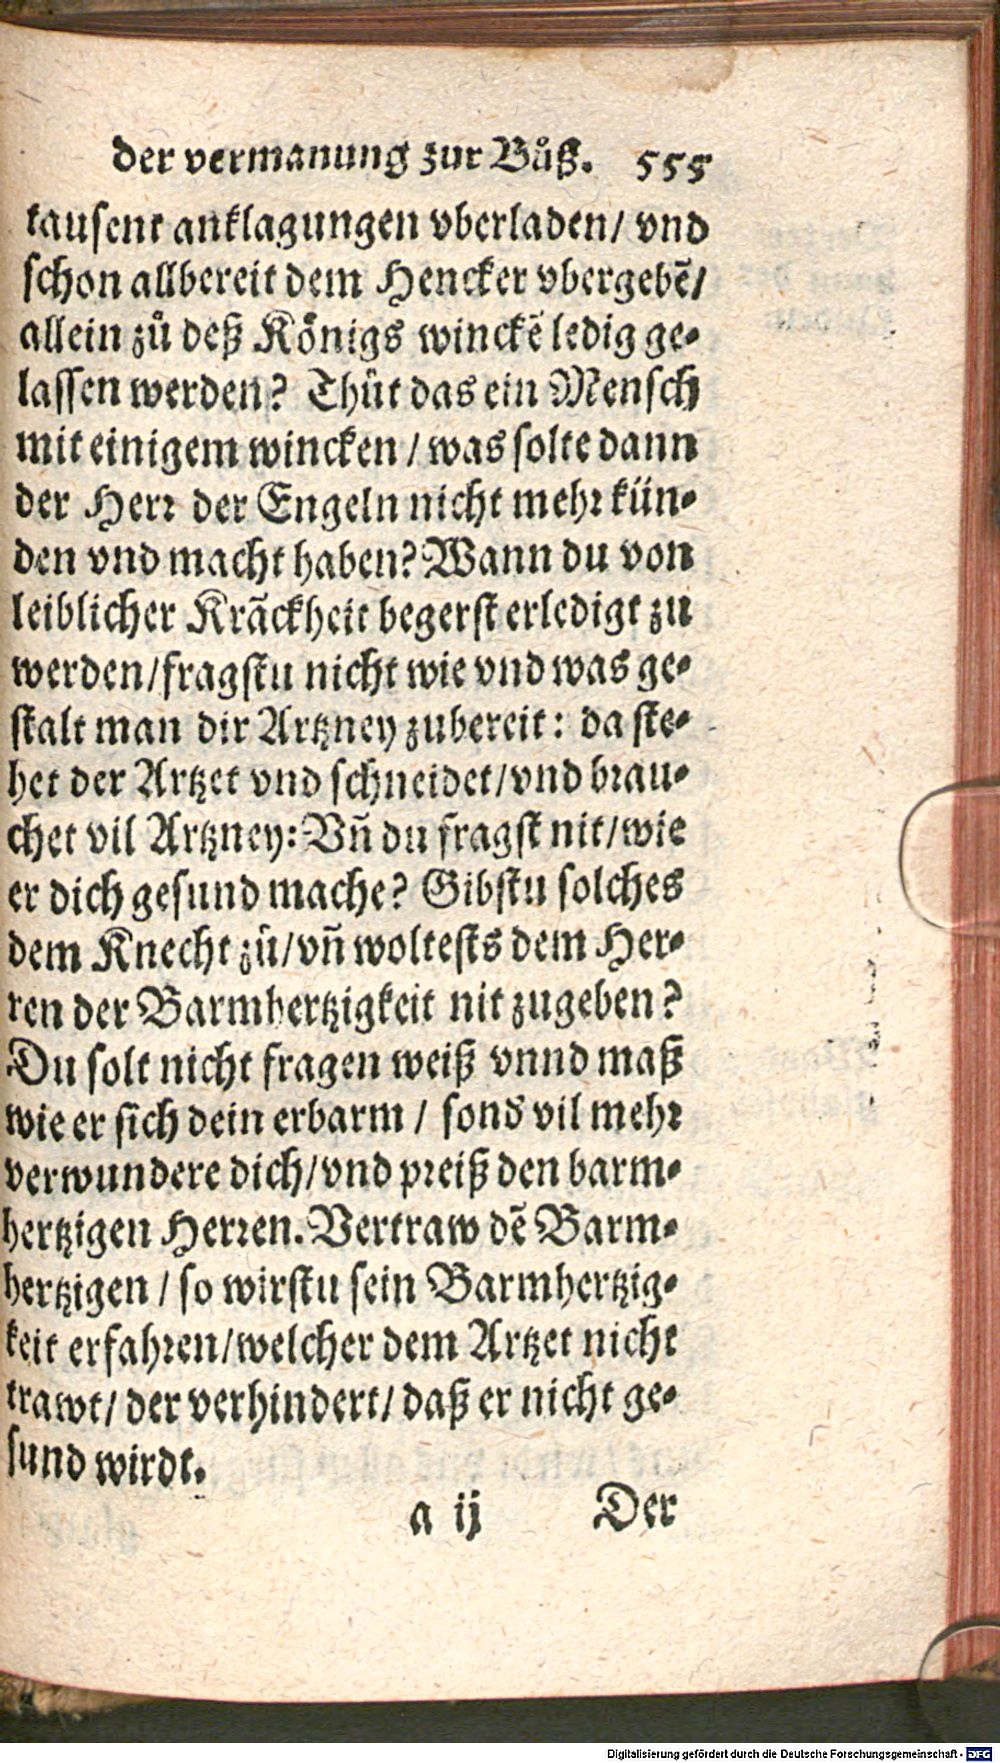 der vermanung zur Bůß. 555
tausent anklagungen vberladen/ vnd
schon allbereit dem Hencker vbergebẽ/
allein zů deß Königs winckẽ ledig ge-
lassen werden? Thůt das ein Mensch
mit einigem wincken / was solte dann
der Herr der Engeln nicht mehr kün-
den vnd macht haben? Wann du von
leiblicher Krãckheit begerst erledigt zu
werden/fragstu nicht wie vnd was ge-
stalt man dir Artzney zubereit: da ste-
het der Artzet vnd schneidet/vnd brau-
chet vil Artzney: Vñ du fragst nit/wie
er dich gesund mache? Gibstu solches
dem Knecht zů/vñ woltests dem Her-
ren der Barmhertzigkeit nit zugeben?
Du solt nicht fragen weiß vnnd maß
wie er sich dein erbarm / sond vil mehr
verwundere dich/vnd preiß den barm-
hertzigen Herren. Vertraw dẽ Barm-
hertzigen / so wirstu sein Barmhertzig-
keit erfahren/welcher dem Artzet nicht
trawt/ der verhindert/ daß er nicht ge-
sund wirdt.
a ij Der
Digitalisierung gefördert durch die Deutsche Forschungsgemeinschaft - DFG